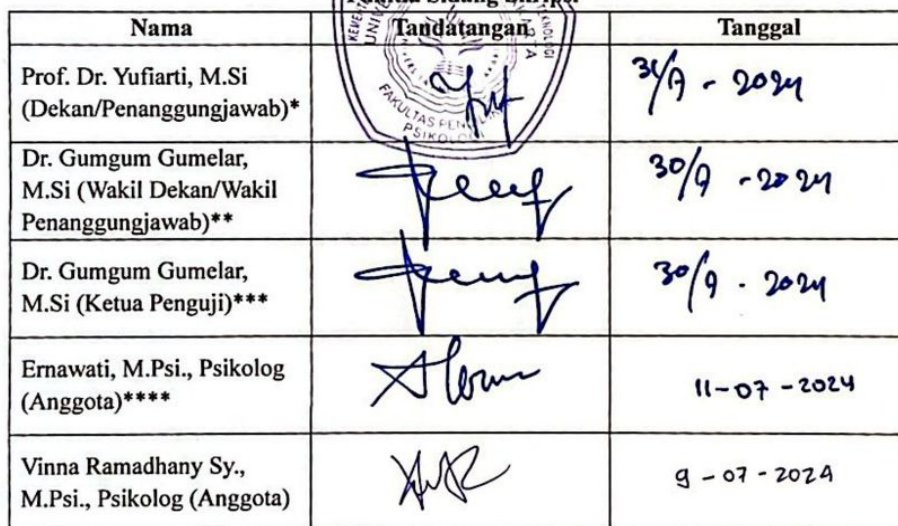 Panitia Sidang Skripsi
Nama Tandatangan Tanggal
Prof. Dr. Yufiarti, M.Si
(Dekan/Penanggungjawab)*
FAKULTAS
PSIKOLOGI
Dr. Gumgum Gumelar,
M.Si (Wakil Dekan/Wakil
Penanggungjawab)**
30/9 - 2024
Dr. Gumgum Gumelar,
M.Si (Ketua Penguji)***
30/9 - 2024
Ernawati, M.Psi., Psikolog
(Anggota)****
11-07-2024
Vinna Ramadhany Sy.,
M.Psi., Psikolog (Anggota)
9-07-2024